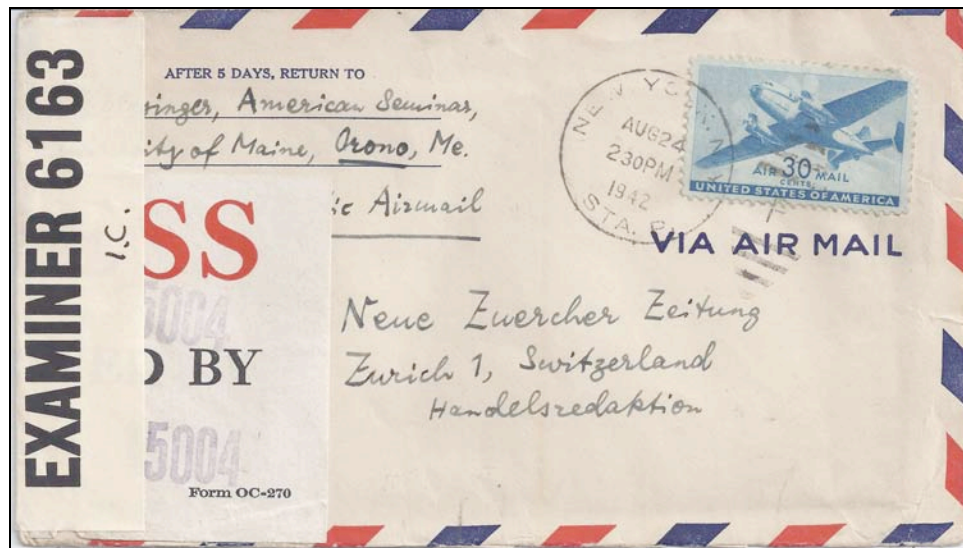 EXAMINER 6163
I.C.
AFTER 5 DAYS, RETURN TO
inger, American Seminar,
ity of Maine, Orono, Me.
ic Airmail
SS
5004
BY
5004
Form OC-270
NEW YORK, N.
AUG 24
230PM
1942
STA.
AIR 30 MAIL
CENTS
UNITED STATES OF AMERICA
VIA AIR MAIL
Neue Zuercher Zeitung
Zurich 1, Switzerland
Handelsredaktion